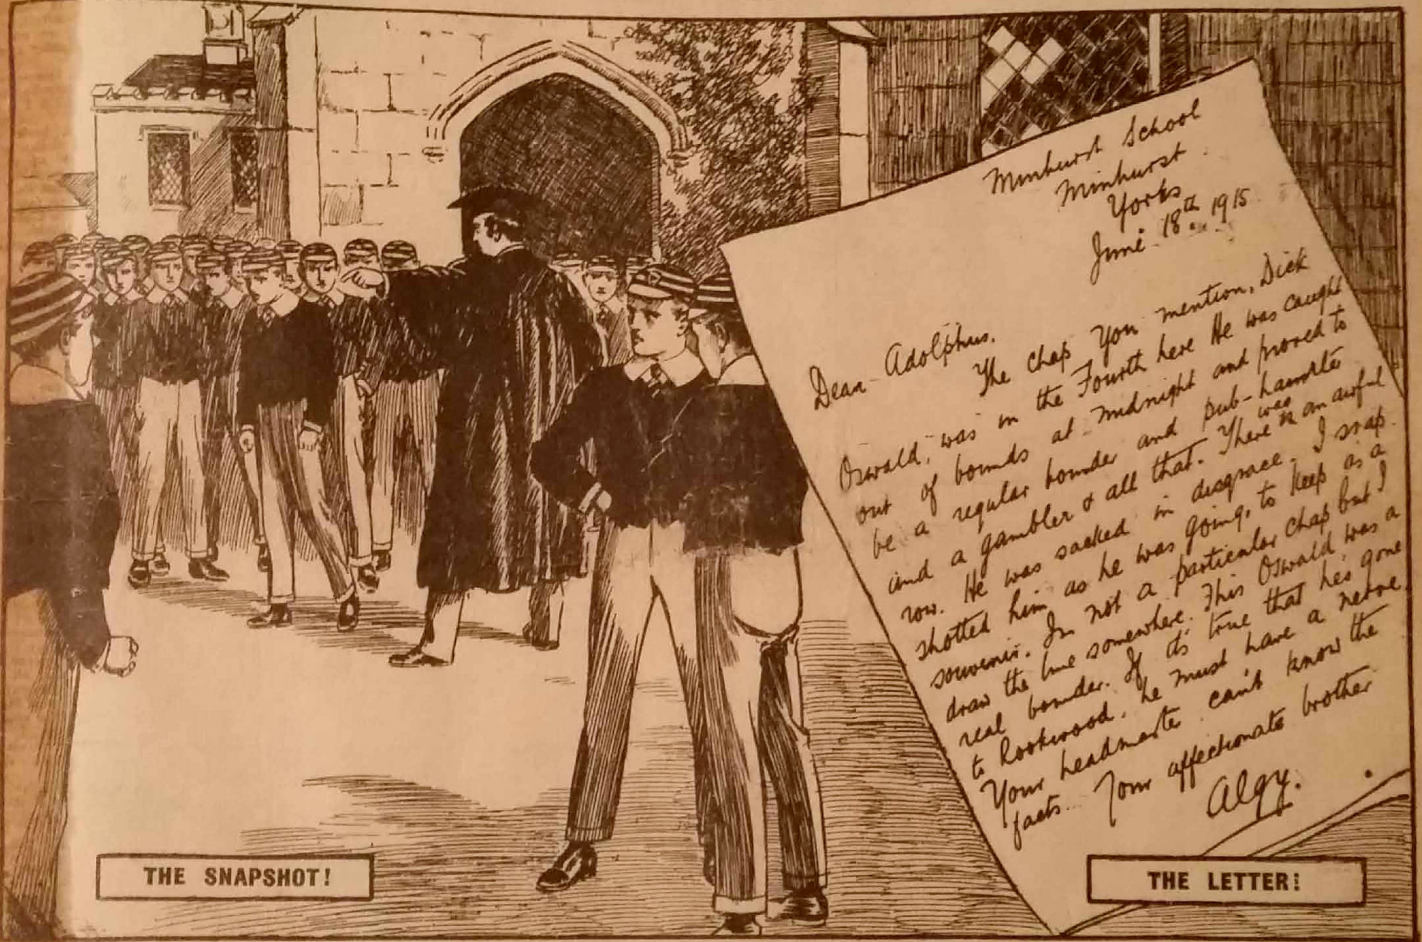 Minhurst School
Minhurst
Yorks
June 18th 1915
Dear Adolphus,
The chap you mention, Dick
Oswald, was in the Fourth here He was caught
out of bounds at midnight and proved to
be a regular bounder and pub-haunter
and a gambler & all that. There was an awful
row. He was sacked in disgrace. I snap-
shotted him as he was going, to keep as a
souvenir. Im not a particular chap but I
draw the line somewhere. This Oswald was a
real bounder. If it's true that he's gone
to Rookwood, he must have a nerve.
Your headmaster can't know the
facts. Your affectionate brother
Algy.
THE SNAPSHOT!
THE LETTER!